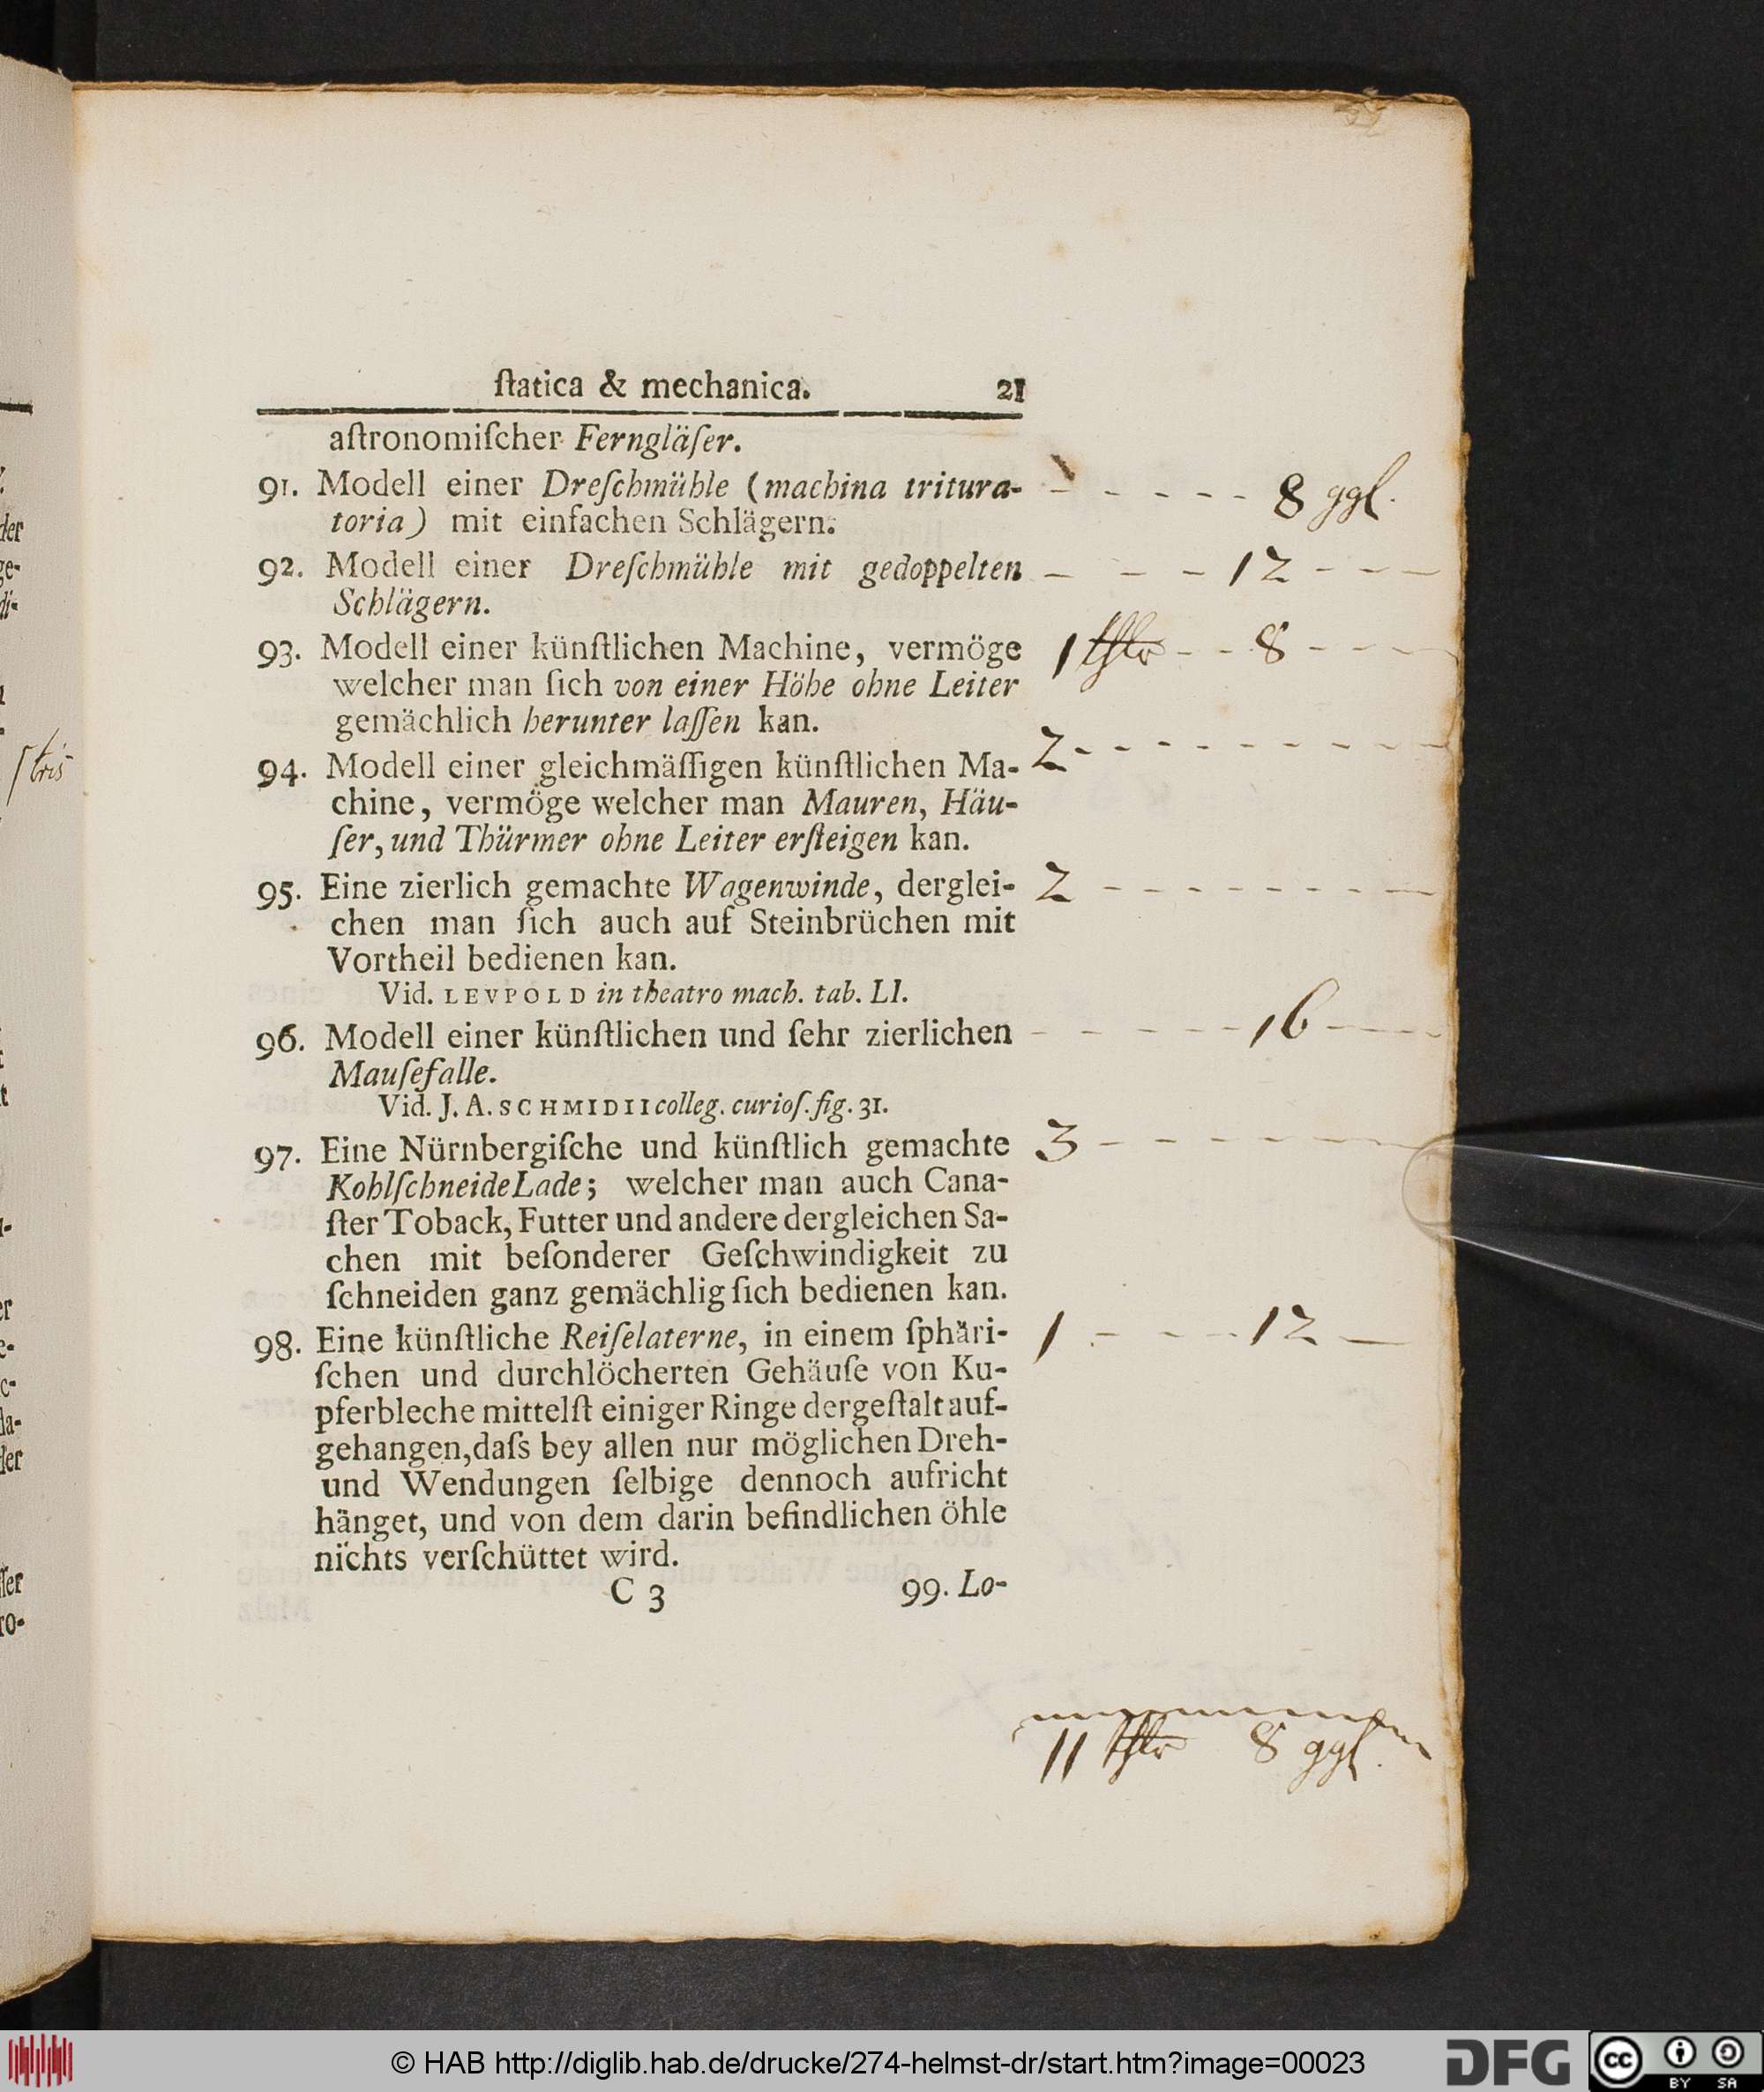 ſtatica & mechanica. 21
aſtronomiſcher Ferngläſer.
91. Modell einer Dreſchmühle (machina tritura- - - - - - - 8 ggl.
toria) mit einfachen Schlägern.
92. Modell einer Dreſchmühle mit gedoppelten - - - 12 - - - -
Schlägern.
93. Modell einer künſtlichen Machine, vermöge 1 thlr - - 8 - - - -
welcher man ſich von einer Höhe ohne Leiter
gemächlich herunter laſſen kan.
94. Modell einer gleichmäſſigen künſtlichen Ma- 2 - - - - - - - - - -
chine, vermöge welcher man Mauren, Häu-
ſer, und Thürmer ohne Leiter erſteigen kan.
95. Eine zierlich gemachte Wagenwinde, derglei- 2 - - - - - - - - -
chen man ſich auch auf Steinbrüchen mit
Vortheil bedienen kan.
Vid. LEVPOLD in theatro mach. tab. LI.
96. Modell einer künſtlichen und ſehr zierlichen - - - - - - 16 - - - -
Mauſefalle.
Vid. J. A. SCHMIDII colleg. curioſ. fig. 31.
97. Eine Nürnbergiſche und künſtlich gemachte 3 - - - - - - -
KohlſchneideLade; welcher man auch Cana-
ſter Toback, Futter und andere dergleichen Sa-
chen mit beſonderer Geſchwindigkeit zu
ſchneiden ganz gemächlig ſich bedienen kan.
98. Eine künſtliche Reiſelaterne, in einem ſphäri- 1 - - - - 12 -
ſchen und durchlöcherten Gehäuſe von Ku-
pferbleche mittelſt einiger Ringe dergeſtalt auf-
gehangen, daſs bey allen nur möglichen Dreh-
und Wendungen ſelbige dennoch aufricht
hänget, und von dem darin befindlichen öhle
nichts verſchüttet wird.
C 3 99. Lo-
11 thlr 8 ggl.
© HAB http://diglib.hab.de/drucke/274-helmst-dr/start.htm?image=00023
DFG
cc BY SA